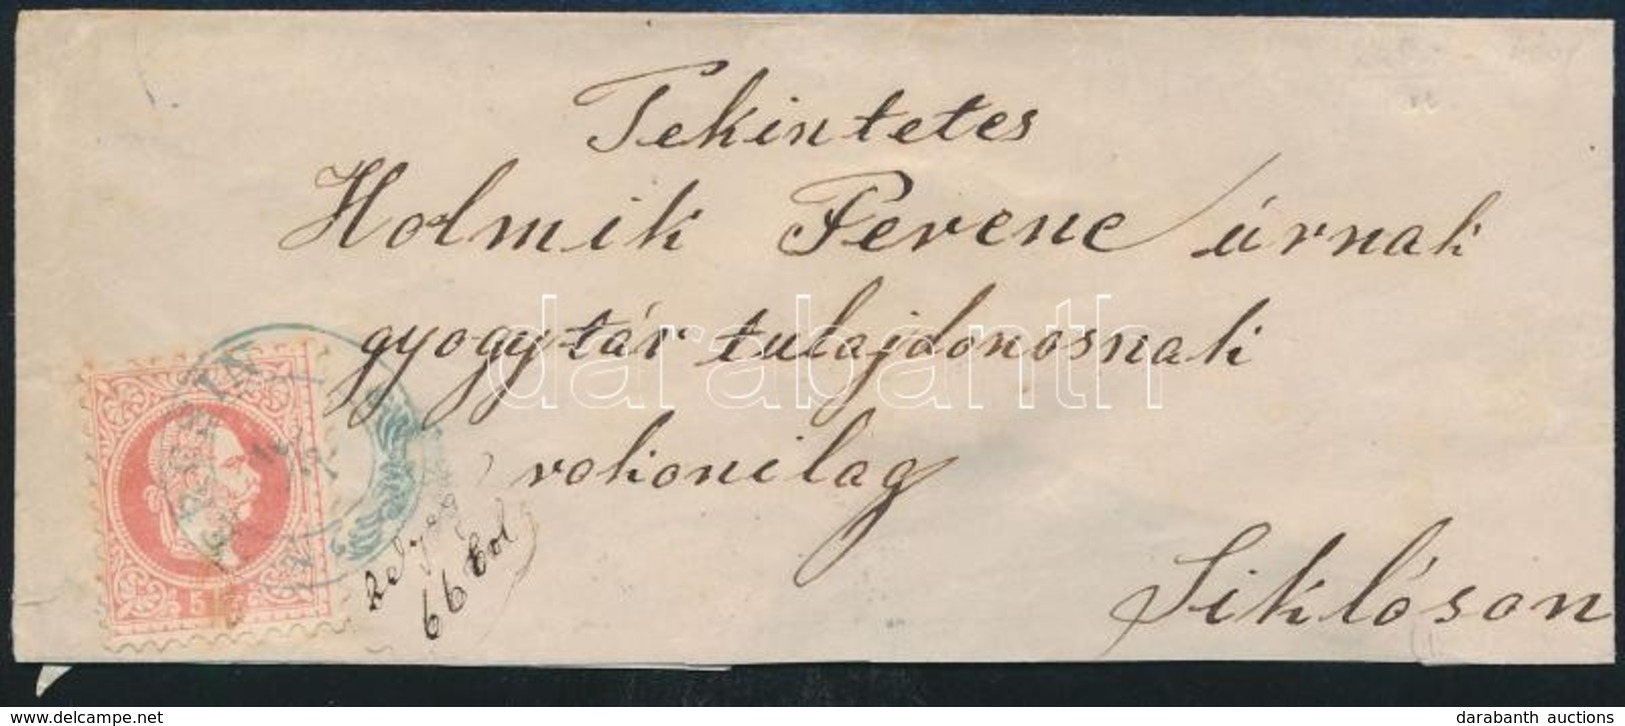 Tekintetes
Holmik Ferenc úrnak
gyogytár tulajdonosnak
rokonilag
Siklóson
66 Kol
5
darabanth
darabanth auctions